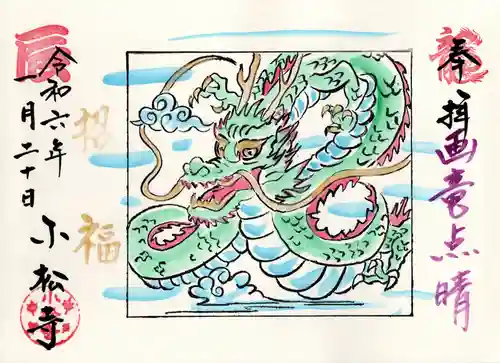 龍
奉拝
画竜点睛
招福
辰
令和六年
一月二十日
小松寺